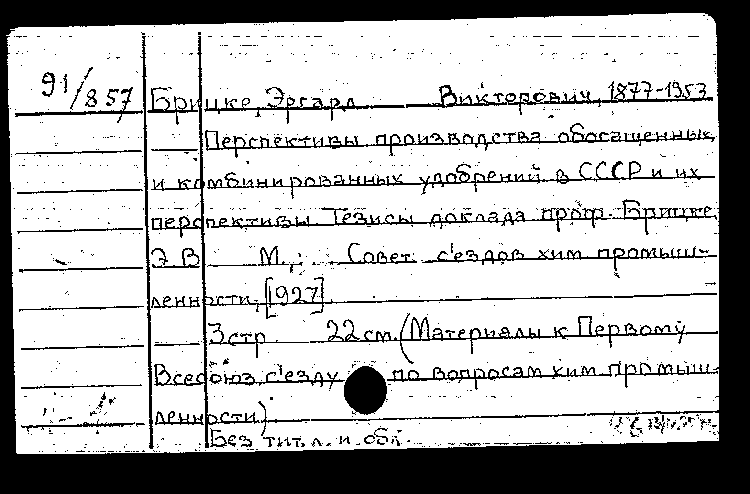 91/857
Брицке, Эргард Викторович, 1877-1953
Перспективы производства обогащенных
и комбинированных удобрений в СССР и их
перспективы Тезисы доклада проф. Брицке
Э В М.: Совет с'ездов хим промыш-
ленности, [1927]
3 стр 22 см. (Материалы к Первому
Всесоюз. с'езду по вопросам хим промыш-
ленности)
Без тит. л. и обл.